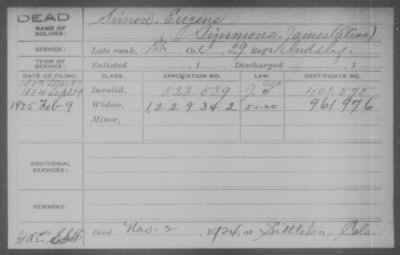 DEAD
NAME OF SOLDIER:
Simon, Eugene
Simmons, James (Alias)
SERVICE:
Late rank, Pvt Co. , 29 Reg't Ind Inf.
TERM OF SERVICE:
Enlisted , 1 Discharged , 1
DATE OF FILING. CLASS. APPLICATION NO. LAW. CERTIFICATE NO.
1884 Sept 29 Invalid, 522.539 G. 402575
1925 Feb 9 Widow, 1229342 961976
Minor,
ADDITIONAL SERVICES:
REMARKS:
Died Nov. 2, 1924, at Littleton, Colo